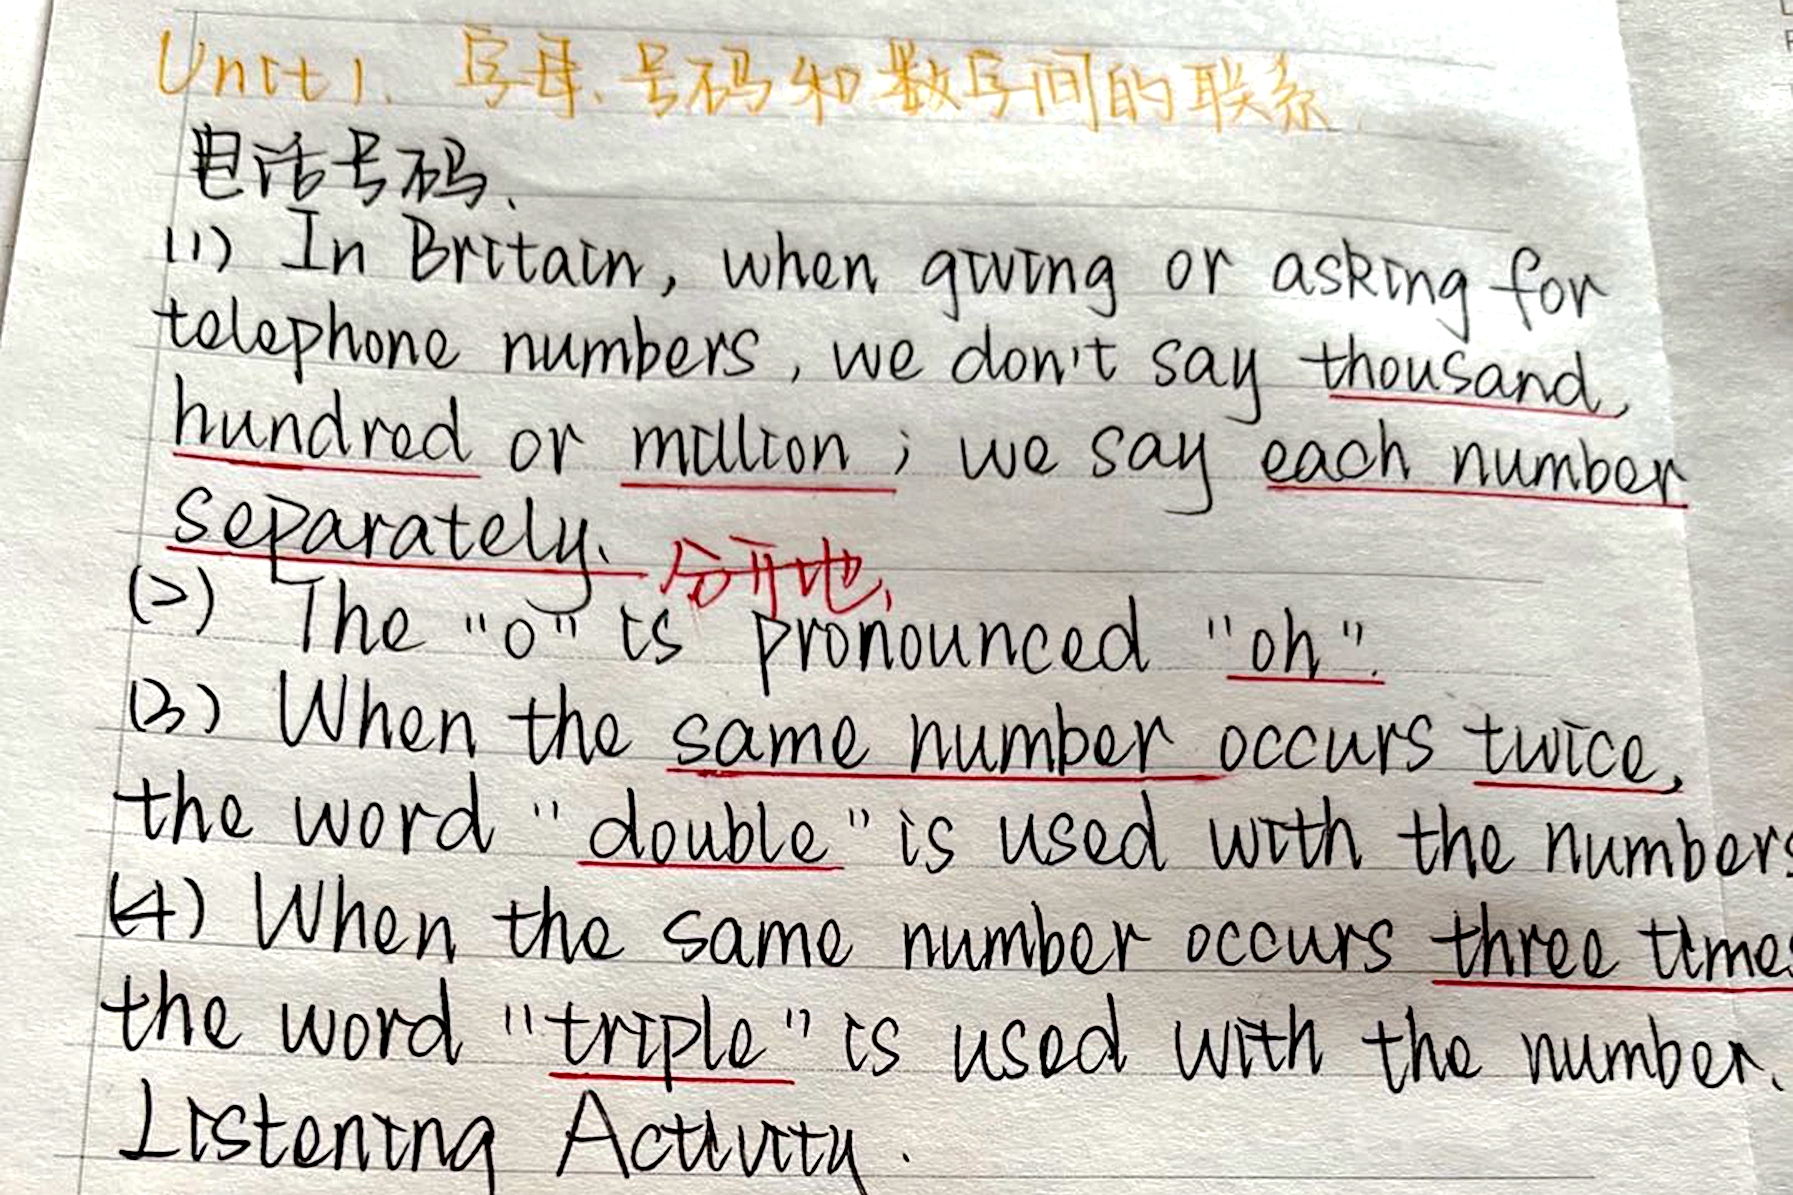 Unit1. 字母、号码和数字间的联系
电话号码.
(1) In Britain, when giving or asking for
telephone numbers, we don't say thousand,
hundred or million; we say each number
separately. 分开地,
(2) The "o" is pronounced "oh".
(3) When the same number occurs twice,
the word "double" is used with the numbers
(4) When the same number occurs three times
the word "triple" is used with the number.
Listening Activity.